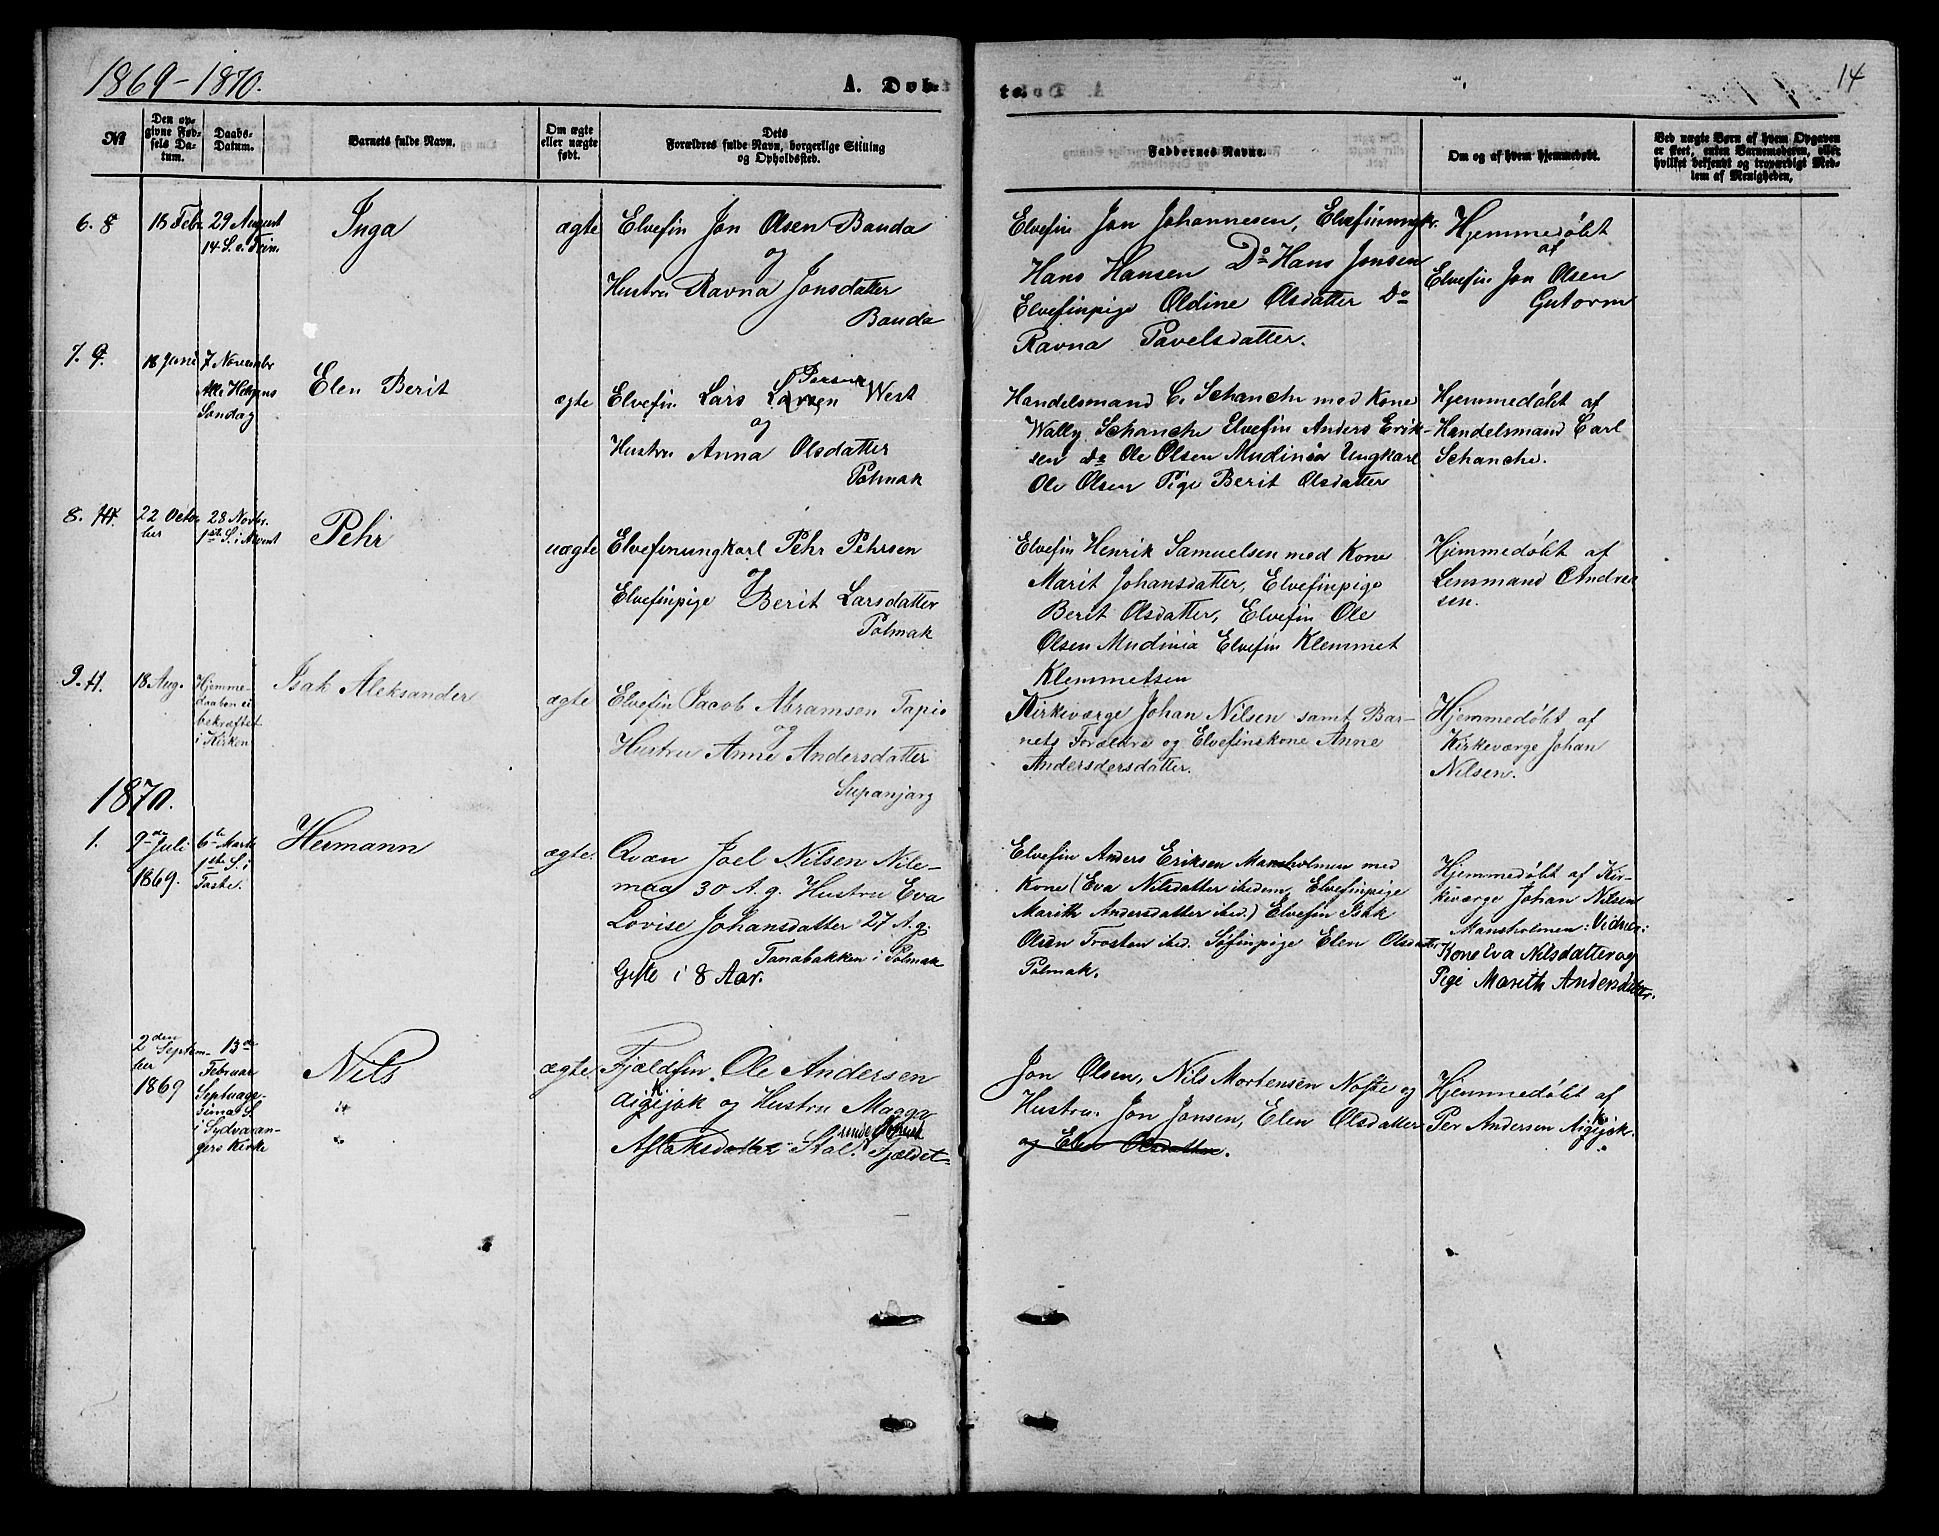 1869-1870.
A. Døb-
te.
14
№
Den op-
givne Fød-
sels Da-
tum.
Daabs-
Datum.
Barnets fulde Navn.
Om ægte
eller uægte
født.
Dets
Forældres fulde Navn, borgerlige Stilling
og Opholdssted.
Faddernes Navne.
Om og af hvem hjemmedøbt.
Ved uægte Børn af hvem Opgaven
er skeet, enten Barnemoderen, eller
hvilket bekjendt og troværdigt Med-
lem af Menigheden.
6. 8
15 Febr.
29 August
14 S. e. Trin.
Inga
ægte
Elvefin Jon Olsen Banda
og
Hustru Ravna Jonsdatter
Banda
Elvefin Jon Johannesen, Elvefinungk.
Hans Hansen Do Hans Jonsen
Elvefinpige Oldine Olsdatter Do
Ravna Pavelsdatter.
Hjemmedøbt
af
Elvefin Jon Olsen
Gutorm
7. 9.
18 Juni
7 November
Alle Helgens
Søndag
Elen Berit
ægte
Elvefin Lars Larsen Persen West
og
Hustru Anna Olsdatter
Polmak
Handelsmand C. Schanche med Kone
Wally Schanche Elvefin Anders Erik-
sen do Ole Olsen Mudinia Ungkarl
Ole Olsen Pige Berit Olsdatter
Hjemmedøbt af
Handelsmand Carl
Schanche.
8.
22 Octo
ber
28 Novbr.
1ste S. i Advent
Pehr
uægte
Elvefinungkarl Pehr Pehrsen
og
Elvefinpige Berit Larsdatter
Polmak
Elvefin Henrik Samuelsen med Kone
Marit Johansdatter, Elvefinpige
Berit Olsdatter, Elvefin Ole
Olsen Mudinia Elvefin Klemmet
Klemmetsen
Hjemmedøbt af
Lensmand Andrea
sen.
9.
18 Aug.
Hjemme-
daaben ei
bekræftet
i Kirken
Isak Aleksander
ægte
Elvefin Jacob Abramsen Tapio
og
Hustru Anne Andersdatter
Seepanjarg
Kirkeværge Johan Nilsen samt Bar-
nets Forældre og Elvefinskone Anne
Andersdersdatter.
Hjemmedøbt af
Kirkeværge Johan
Nilsen.
1870.
1.
9de Juli
1869.
6te Marts
1ste S. i
Faste.
Hermann
ægte.
Qvæn Joel Nilsen Nile-
maa 30 A. g. Hustru Eva
Lovise Johansdatter 27 A. g.
Tanabakken i Polmak
Gifte i 8 Aar.
Elvefin Anders Eriksen Mansholmen med
Kone (Eva Nilsdatter ibidem, Elvefinpige
Marith Andersdatter ibid.) Elvefin Isak
Olsen Trosten ibid. Søfinpige Elen Olsdatter
Polmak.
Hjemmedøbt af Kir-
keværge Johan Nilsen
Mansholmen: Vidner:
Kone Eva Nilsdatter og
Pige Marith Andersdatter.
2den Septem-
ber
1869
13de
Februar
Septuage-
sima S.
i Sydvaran-
gers Kirke
Nils
ægte
Fjeldfin Ole Andersen
Aigijok og Hustru Magga
Aslaksdatter Stal. under Fjeldet
Jon Olsen, Nils Mortensen Nofte og
Hustru. Jon Jonsen, Elen Olsdatter
og Elen Olsdatter.
Hjemmedøbt af
Per Andersen Aigijok.